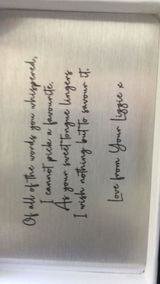 Of all of the words you whispered,
I cannot pick a favourite.
As your sweet tongue lingers
I wish nothing but to savour it.
Love from Your Lizzie x